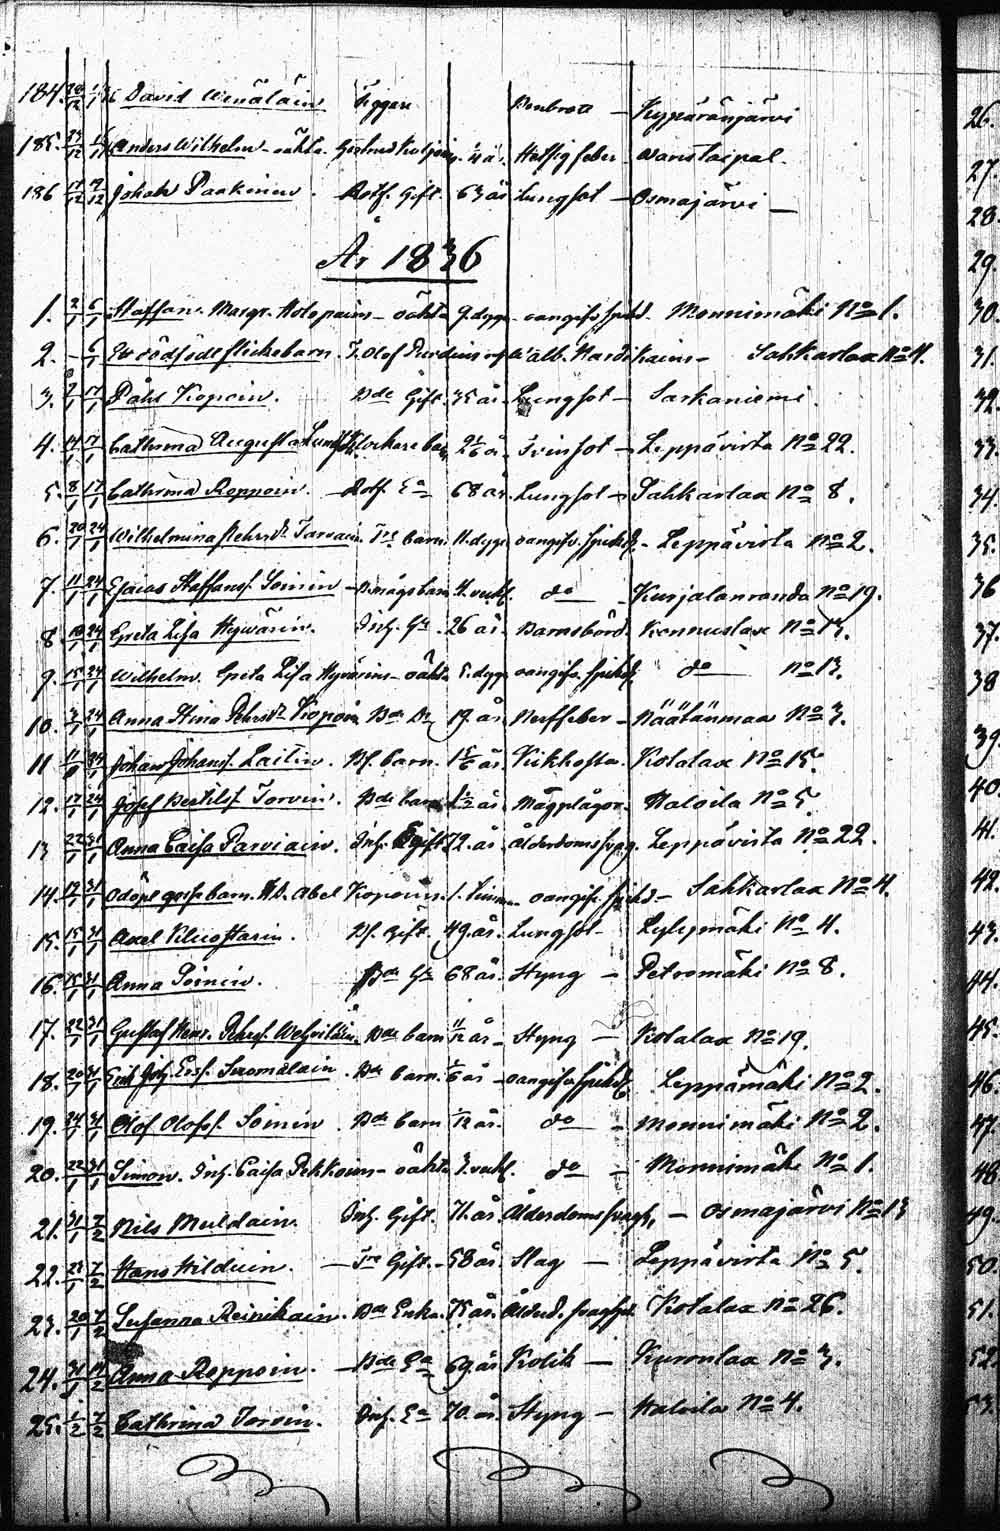 184. 28/12 David Wenäläin Tiggare Benbrott — Kypäränjärvi
185. 23/12 Anders Wilhelm - oäkta. 1/4 år. Hettsig feber - Wanstaipal.
186 Johan Paakinin. Rotf. Gift. 63 år Lungsot — Osmajärvi —
År 1836
1. 2/1 6/1 Staffan. Margr. Holopains - oäkta 9. dygn - oangifv. sjukd. Monnimäki No 1.
2. — 6/1 Ett dödfödt flickebarn. T. Olof Sahkarlax No 4.
3. 9/1 17/1 Påhl Kopoin. Bde Gift. 35 år. Lungsot — Sarkaniemi.
4. 14/1 17/1 Cathrina Augusta Klockare barn 2 1/6 år. Tvinsot — Leppävirta No 22.
5. 8/1 17/1 Cathrina Roppoin. — Rotf. Ea 68 år. Lungsot — Sahkarlax No 8.
6. 20/1 24/1 Wilhelmina Pehrsdr Tarvain. Trs barn. 11. dygn oangifv. sjukd. - Leppävirta No 2.
7. 11/1 24/1 Esaias Staffansf. Soinin — Bmågs barn 4. veck. do — Kurjalanranda No 19.
8. 18/1 24/1 Greta Lisa Hyvärin. Inh. Ga. 26 år. Barnsbörd. Konnuslax No 13.
9. 15/1 24/1 Wilhelm. Greta Lisa Hyvärins - oäkta 5. dygn oangifv. sjukd. do — No 13.
10. 3/1 24/1 Anna Stina Pehrsdr Kopoin Bde Dr 19. år. Nerffeber — Näätänmaa No 3.
11 11/1 24/1 Johan Johansf. Laitin. Bf. barn. 1 5/6 år. Kikhosta. Kotalax No 15.
12. 17/1 24/1 Josef Bertilsf. Torvin. Bde barn 1 1/2 år. Magplågor. Kaloila No 5
13 22/1 31/1 Anna Caisa Parviain. Inh. Gift 72. år. Ålderdomssvag. Leppävirta No 22.
14. 17/1 31/1 Odöpt gossebarn. Abel Kopoins. 1. timme oangifv. sjukd — Sahkarlax No 4.
15. 15/1 31/1 Axel Vilhottarin. Bf. Gift. 49. år. Lungsot - Lylymäki No 4.
16. 15/1 31/1 Anna Soinin. Bde Ga 68 år. Styng — Petromäki No 8.
17. 22/1 31/1 Gustaf Henr. Pehrsf. Wehviläin. Bde barn 11/12 år — Styng — Kotalax No 19.
18. 20/1 31/1 Erik Joh. Ersf. Suomalain. Bde barn. 1/6 år — oangifv sjukd. Leppämäki No 2.
19. 24/1 31/1 Olof Olofsf. Soinin. Bde barn 1/12 år. do — Monnimäki No 2.
20. 22/1 31/1 Simon. Inh. Caisa Pekkoins - oäkta 3. veck. do — Monnimäki No 1.
21. 31/1 7/2 Nils Muldain. Inh. Gift. 71. år. Ålderdomssvagh, — Osmajärvi No 13
22. 25/1 7/2 Hans Hilduin. — Tre Gift. - 58 år. Slag — Leppävirta No 5.
23. 20/1 7/2 Susanna Reinikain. Bde Enka. 75 år. Ålderd. svaghet. Kotalax No 26.
24. 31/1 14/2 Anna Roppoin. — Bde Ea 69 år Kolik — Kurronlax No 3.
25. 1/2 7/2 Cathrina Torvin. Inh. Ea 70 år. Styng — Kaloila No 4.
26.
27.
28.
29.
30.
31.
32.
33.
34.
35.
36
37
38
39.
40.
41.
42.
43.
44.
45.
46.
47.
48
49.
50.
51.
52.
53.